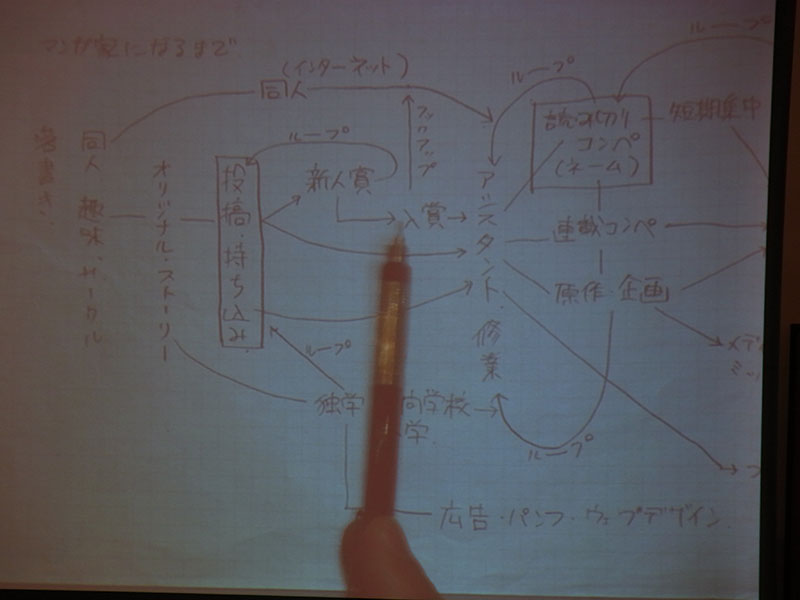 マンガ家になるまで
落書き
同人 趣味、サークル
オリジナル・ストーリー
(インターネット)
同人
フックアップ
ループ
投稿・持ち込み
新人賞
入賞
アシスタント 修業
ループ
読み切り
コンペ
(ネーム)
ループ
短期集中
連載コンペ
原作・企画
メディ
ミッ
ループ
ループ
独学
向学校
学
広告・パンフ・ウェブデザイン